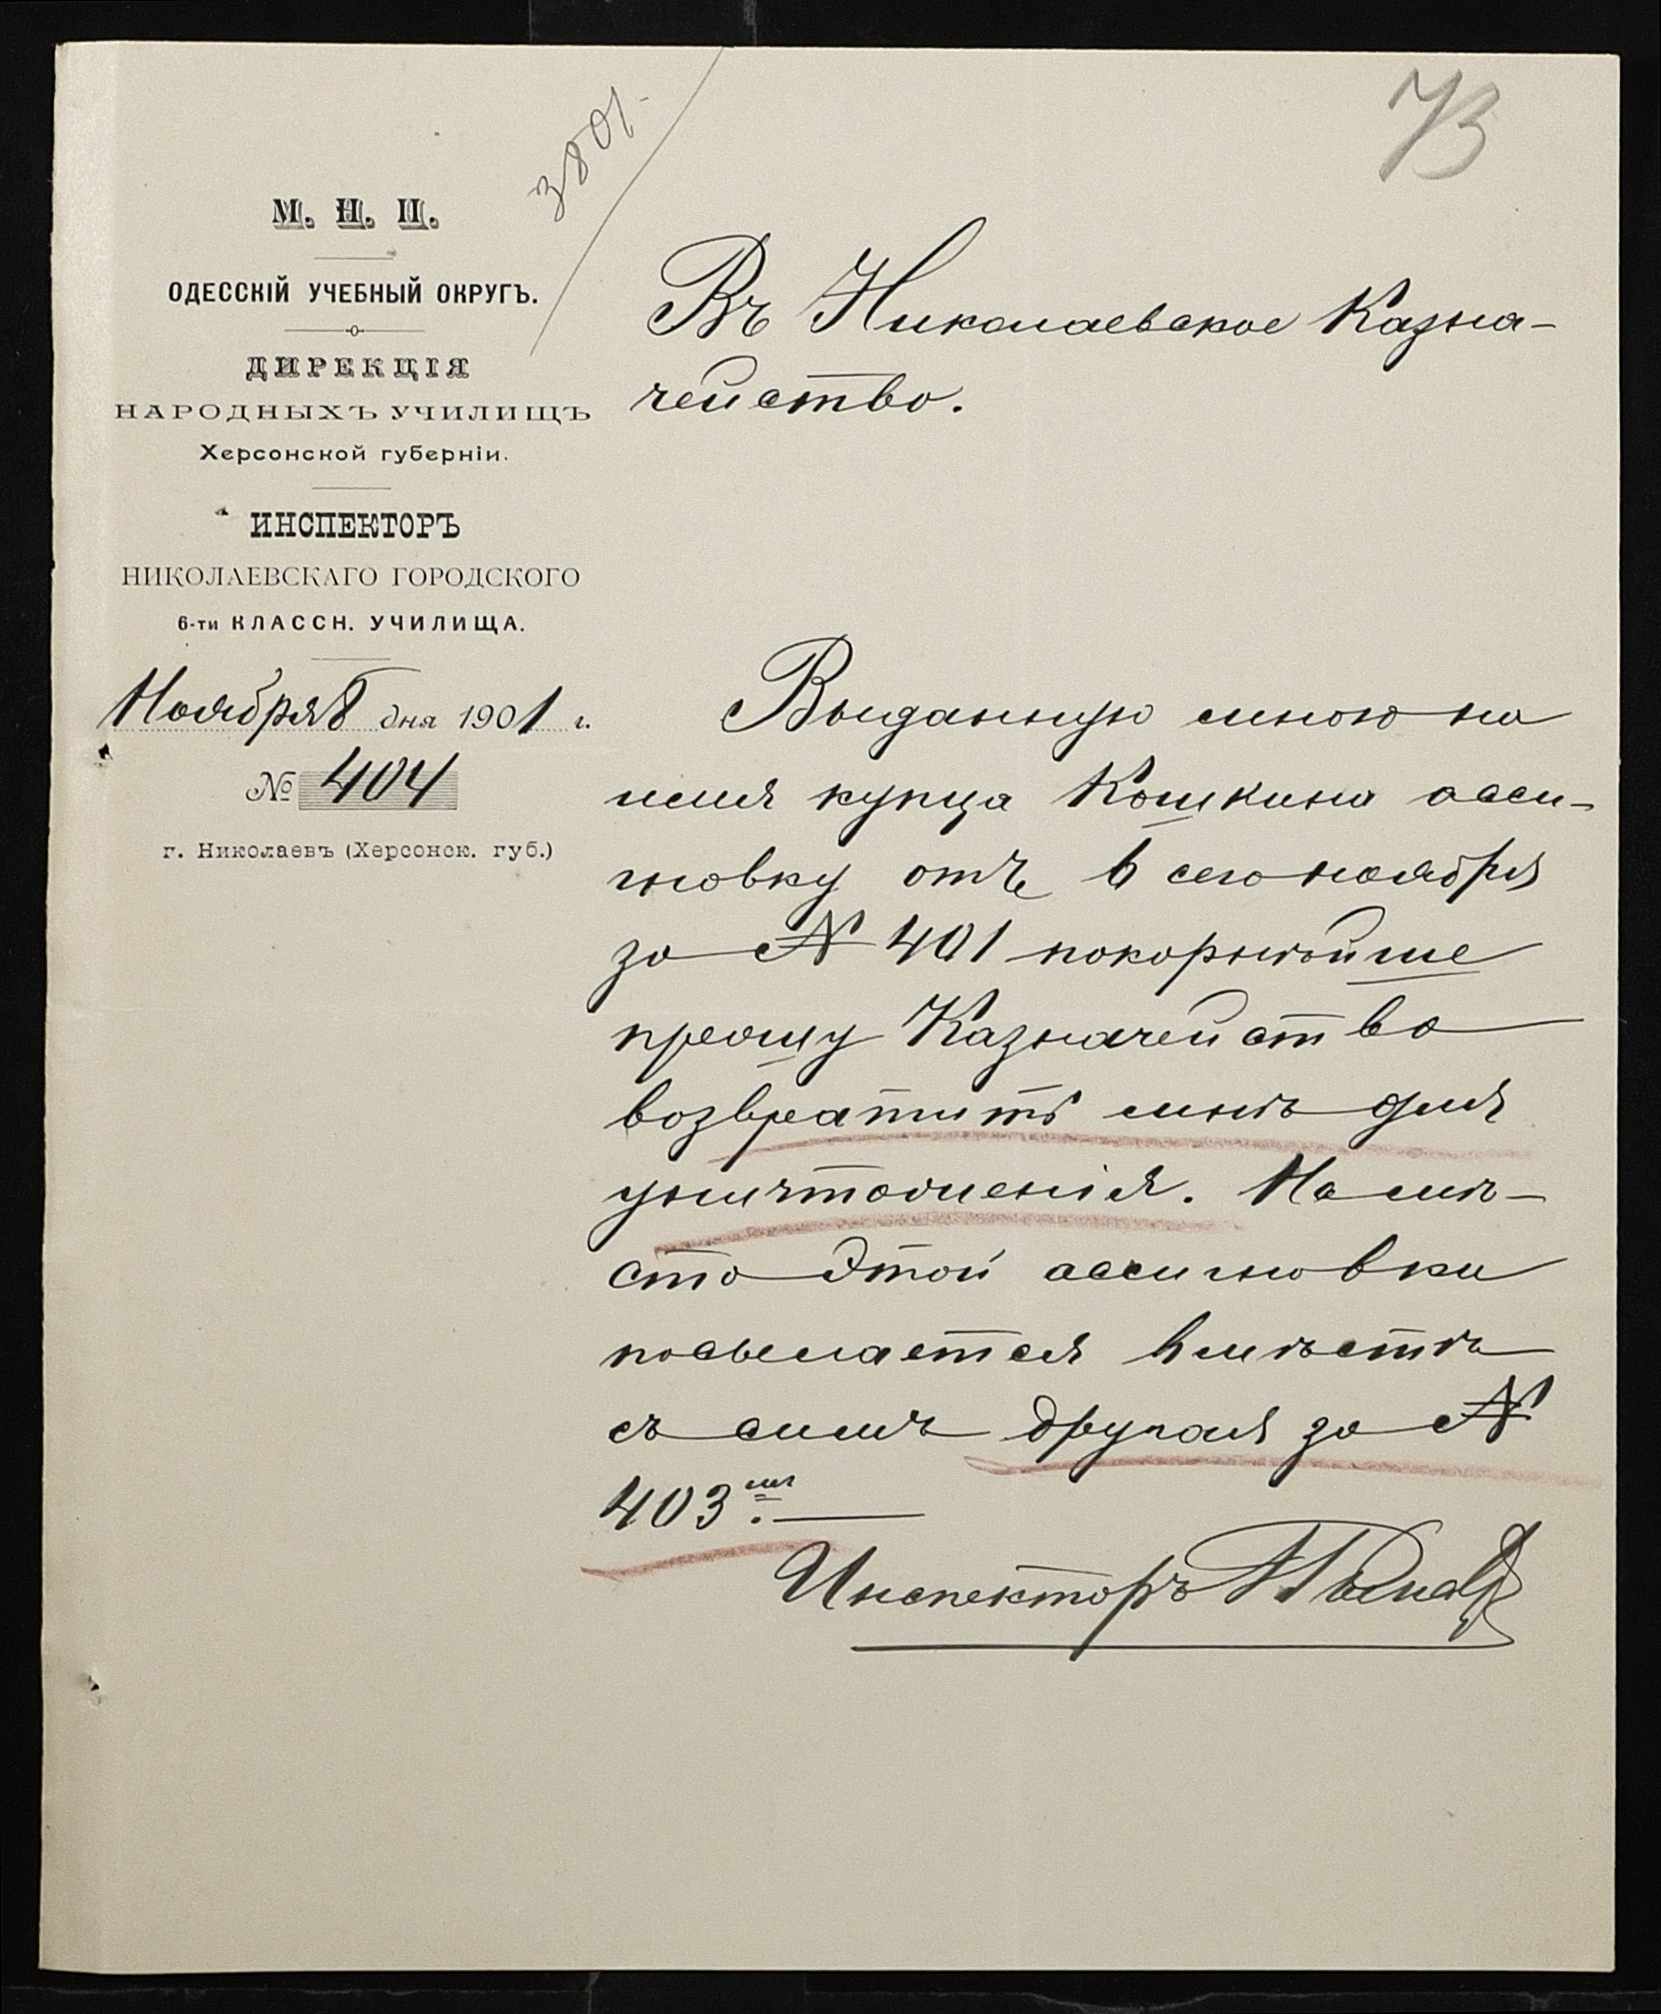 73
3801
М. Н. П.
ОДЕССКІЙ УЧЕБНЫЙ ОКРУГЪ.
ДИРЕКЦІЯ
НАРОДНЫХЪ УЧИЛИЩЪ
Херсонской губерніи.
ИНСПЕКТОРЪ
НИКОЛАЕВСКАГО ГОРОДСКОГО
6-ти КЛАССН. УЧИЛИЩА.
Ноября 8 дня 1901 г.
№ 404
г. Николаевъ (Херсонск. губ.)
Въ Николаевское Казна-
чейство.
Выданную мною на
имя купца Кошкина асси-
гновку отъ 6 сего ноября
за № 401 покорнѣйше
прошу Казначейство
возвратить мнѣ для
уничтоженія. На мѣ-
сто этой ассигновки
посылается вмѣстѣ
съ симъ другая за №
403мъ.
Инспекторъ